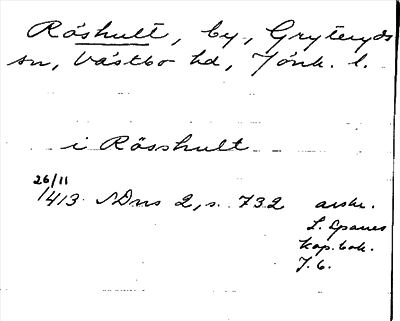 Röshult, by, Gryteryds
sn, Västbo hd, Jönk. l.
i Rösshult
26/11
1413 NDns 2, s. 732 avskr.
L. Sparres
kop.bok.
J. 6.